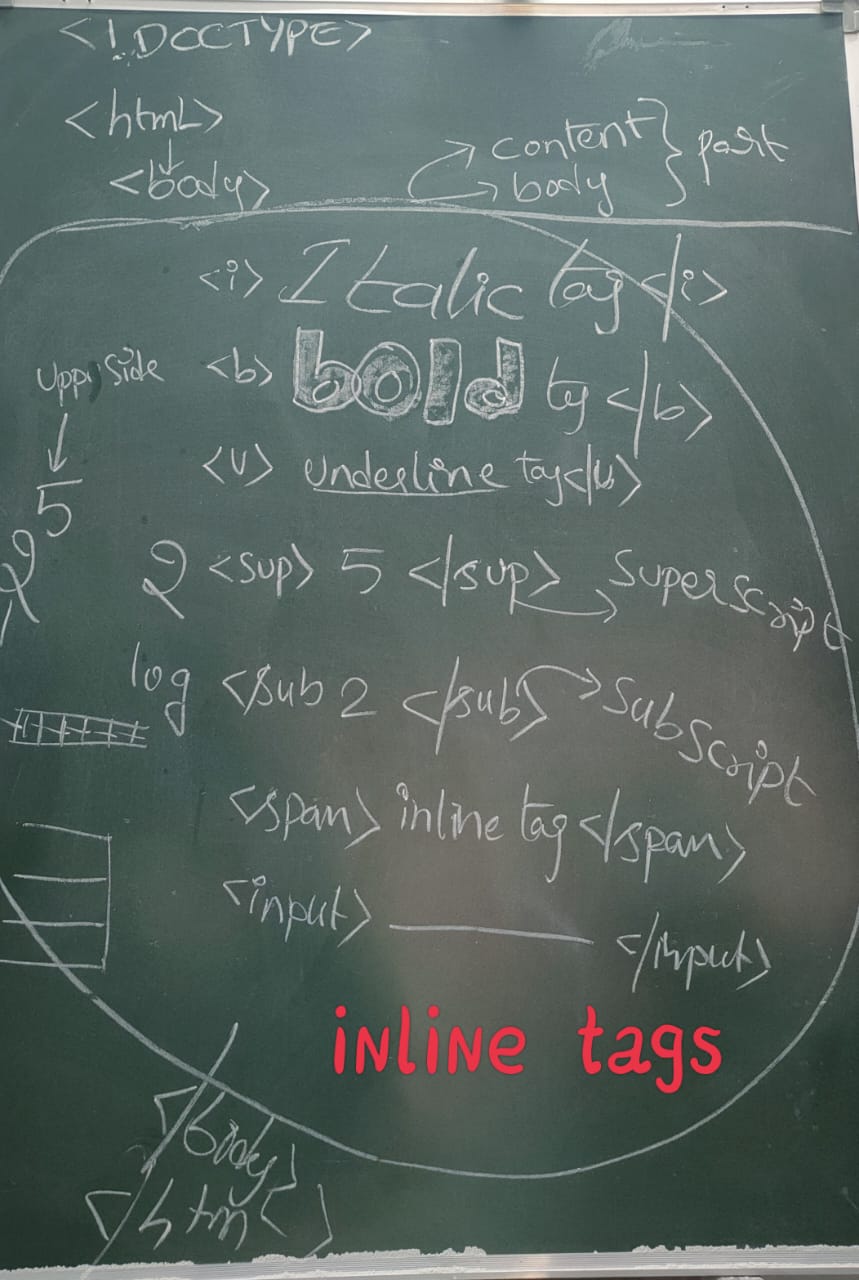 <!DOCTYPE>
<html>
<body>
content
body
part
<i> Italic tag </i>
Uppr Side
<b> bold tg </b>
<U> underline tag</u>
2 5
2 <sup> 5 </sup> Superscript
log <sub 2 </sub> Subscript
<span> inline tag </span>
<input> </input>
inline tags
</body>
</html>